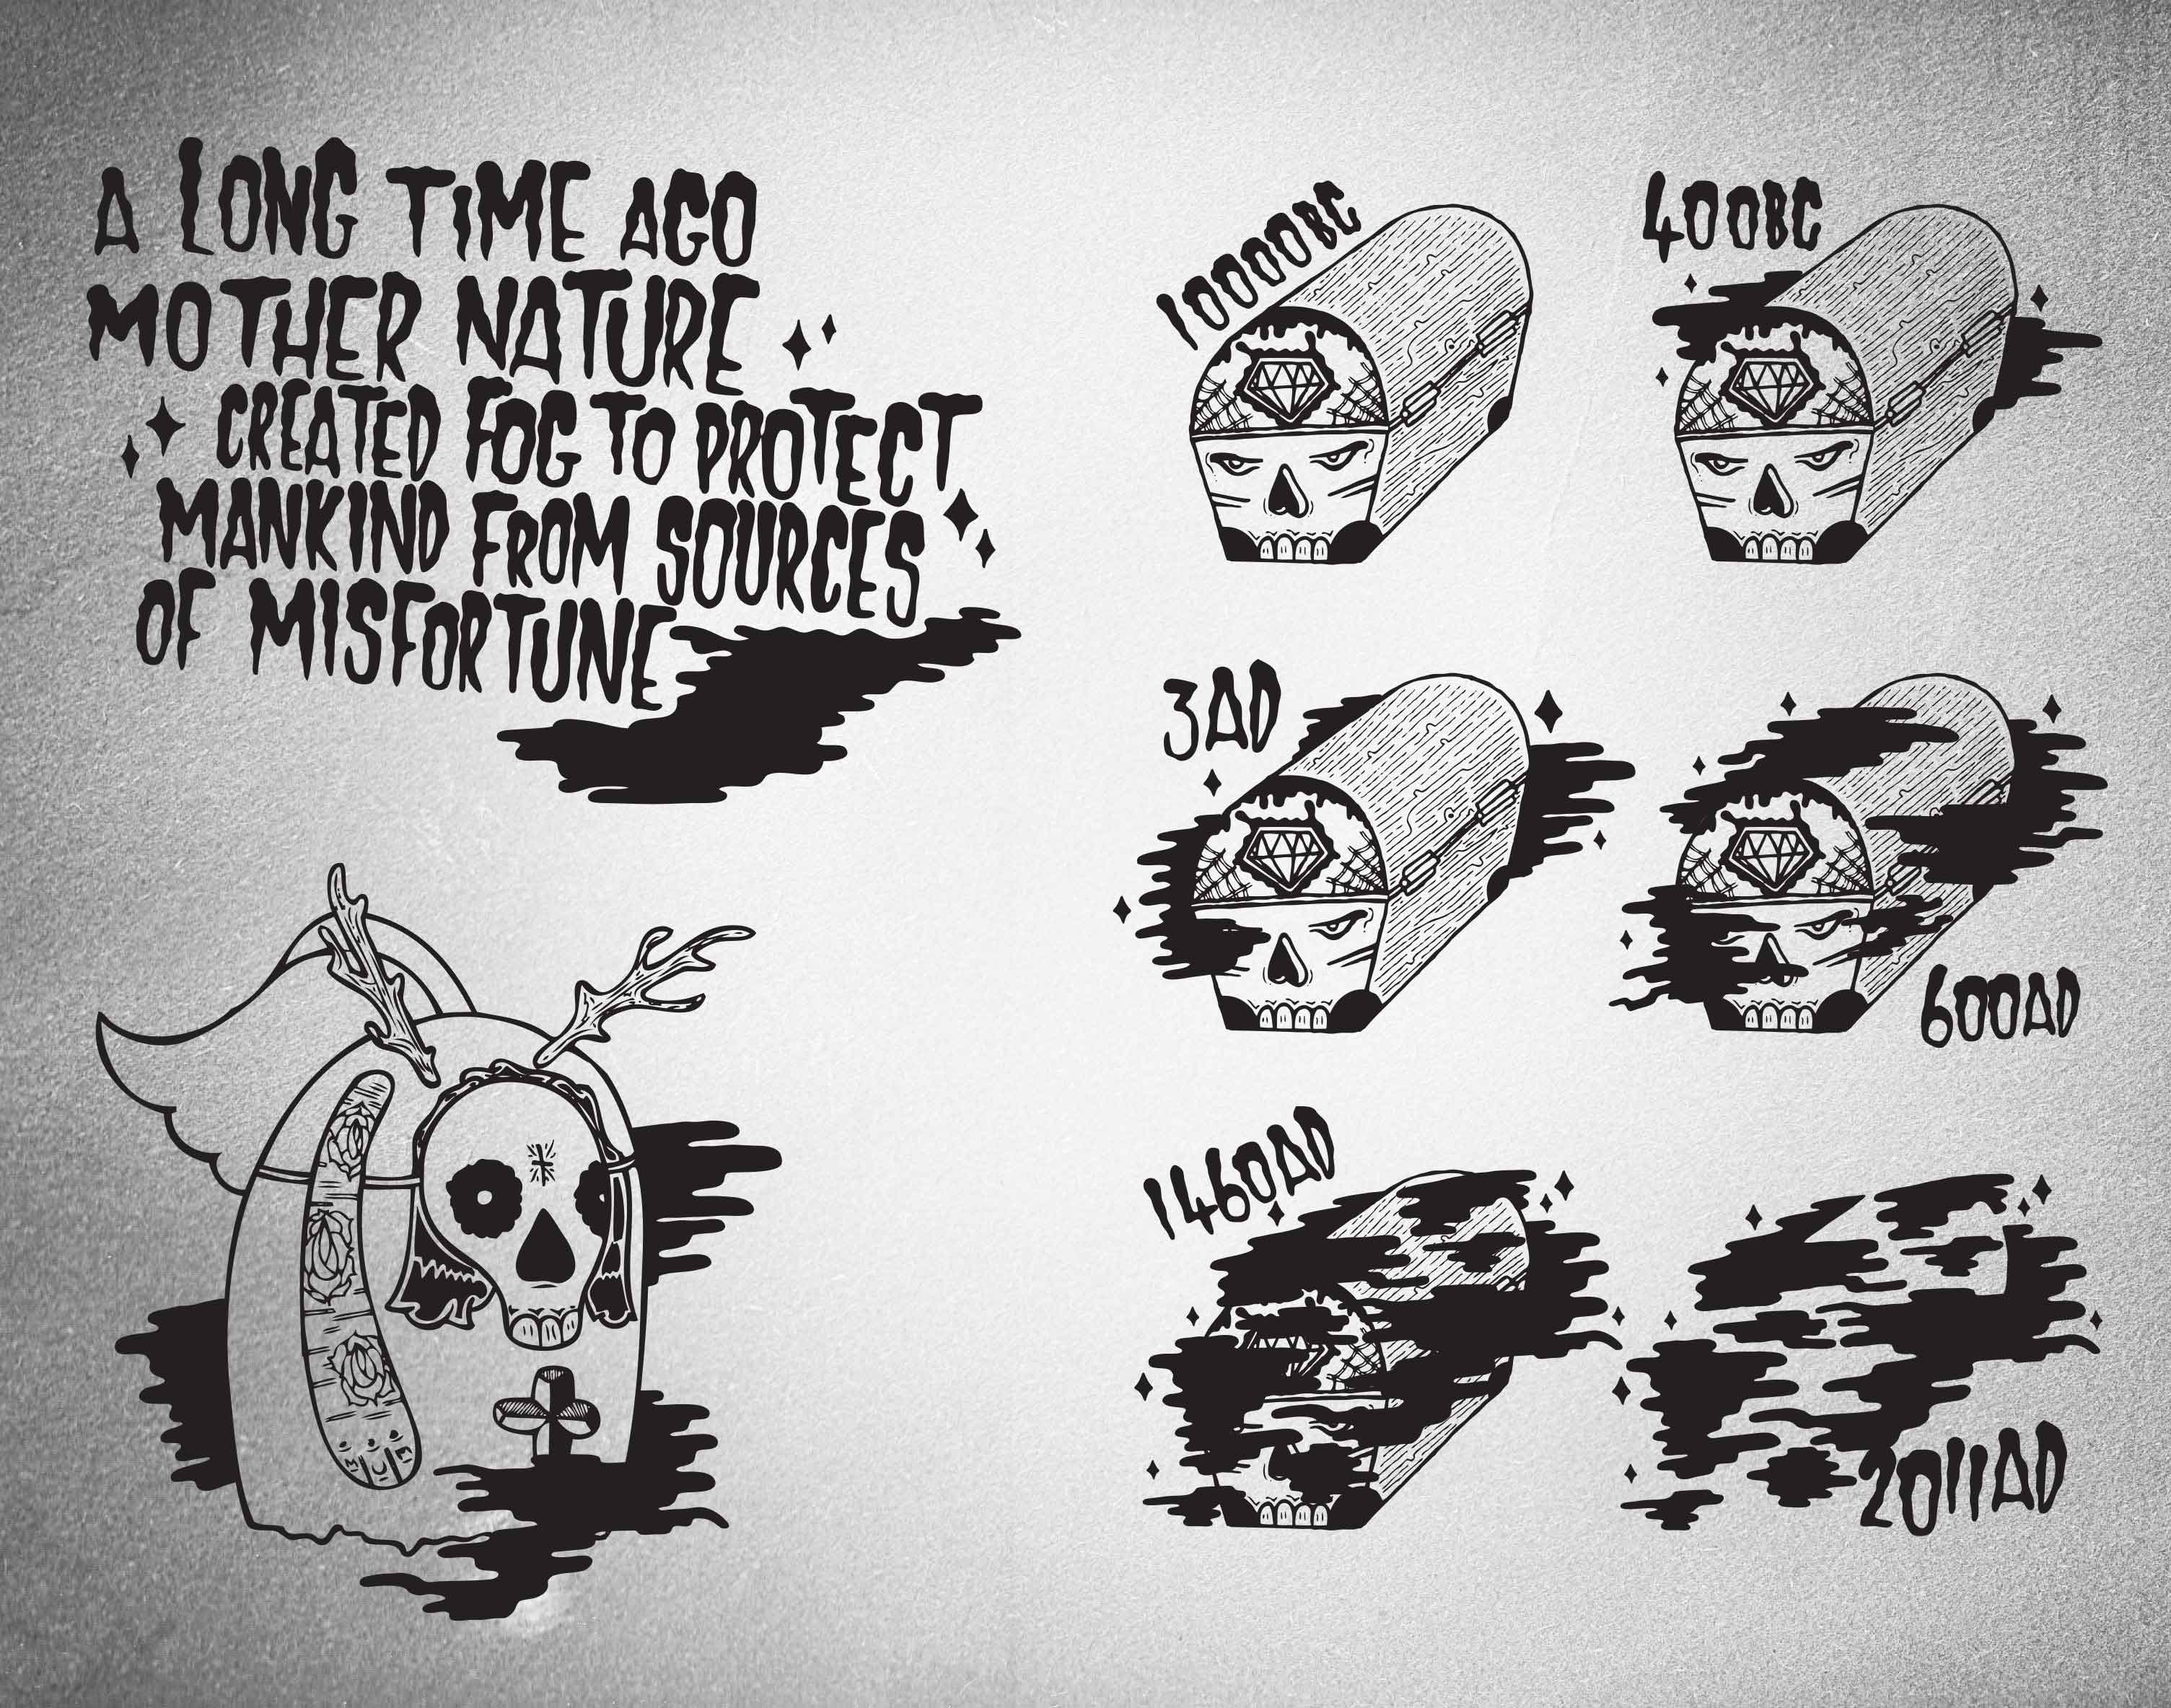 A LONG TIME AGO
MOTHER NATURE
CREATED FOG TO PROTECT
MANKIND FROM SOURCES
OF MISFORTUNE
10000BC
400BC
3AD
600AD
1460AD
2011AD
MUE